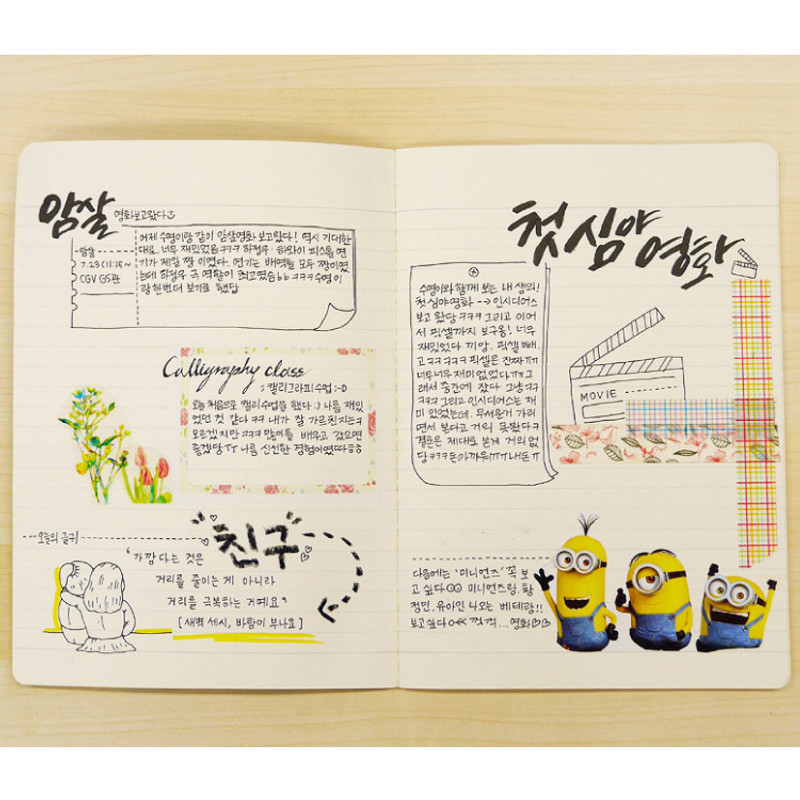 암살 영화보고왔다
어제 수영이랑 같이 암살영화 보고왔다! 역시 기대한
대로 너무 재밌었음 ㅋㅋㅋ 하정우·하와이 피스톨 연
기가 제일 짱 이였다. 연기는 배역들 모두 짱이였
는데 하정우 극 역할이 최고였슴bb ㅋㅋㅋ 수영이
랑 한번더 보기로 했답
암살
7.23 (11:15~
CGV GS관
Calligraphy class
; 캘리그라피수업 :-D
오늘 처음으로 캘리수업을 했다 :) 나름 재밌
었던 것 같다 ㅋㅋ 내가 잘 가르친지는ㅋ
모르겠지만 ㅋㅋㅋ 많이들 배우고 갔으면
좋겠당 ㅠㅠ 나름 신선한 경험이였따ㅎㅎ
오늘의 글귀
친구
"가깝다는 것은
거리를 줄이는게 아니라
거리를 극복하는 거예요"
[새벽 세시, 바람이 부나요]
첫 심야 영화
수영이와 함께 보는 내 생의!
첫 심야영화 --> 인시디어스
보고 왔당 ㅋㅋㅋ 그리고 이어
서 픽셀까지 보구옹! 너무
재밌었다 끼얏. 픽셀 빼
고 ㅋㅋㅋㅋ 픽셀은 진짜 ㅠㅠ
너무너무 재미 없었다ㅠㅠ 그
래서 중간에 잤다 그냥ㅋㅋ
ㅋㅋㅋ 그리고 인시디어스는 재
미 있었는데. 무서운거 가리
면서 본다고 거의 못봤다ㅋ
결론은 제대로 본게 거의 없
당 ㅋㅋㅋ 돈아까워ㅠㅠ 내돈 ㅠ
MOVIE
다음에는 '미니언즈' 꼭 보
고 싶다 미니언즈랑. 황
정민, 유아인 나오는 베테랑!!
보고싶다 ... 영화